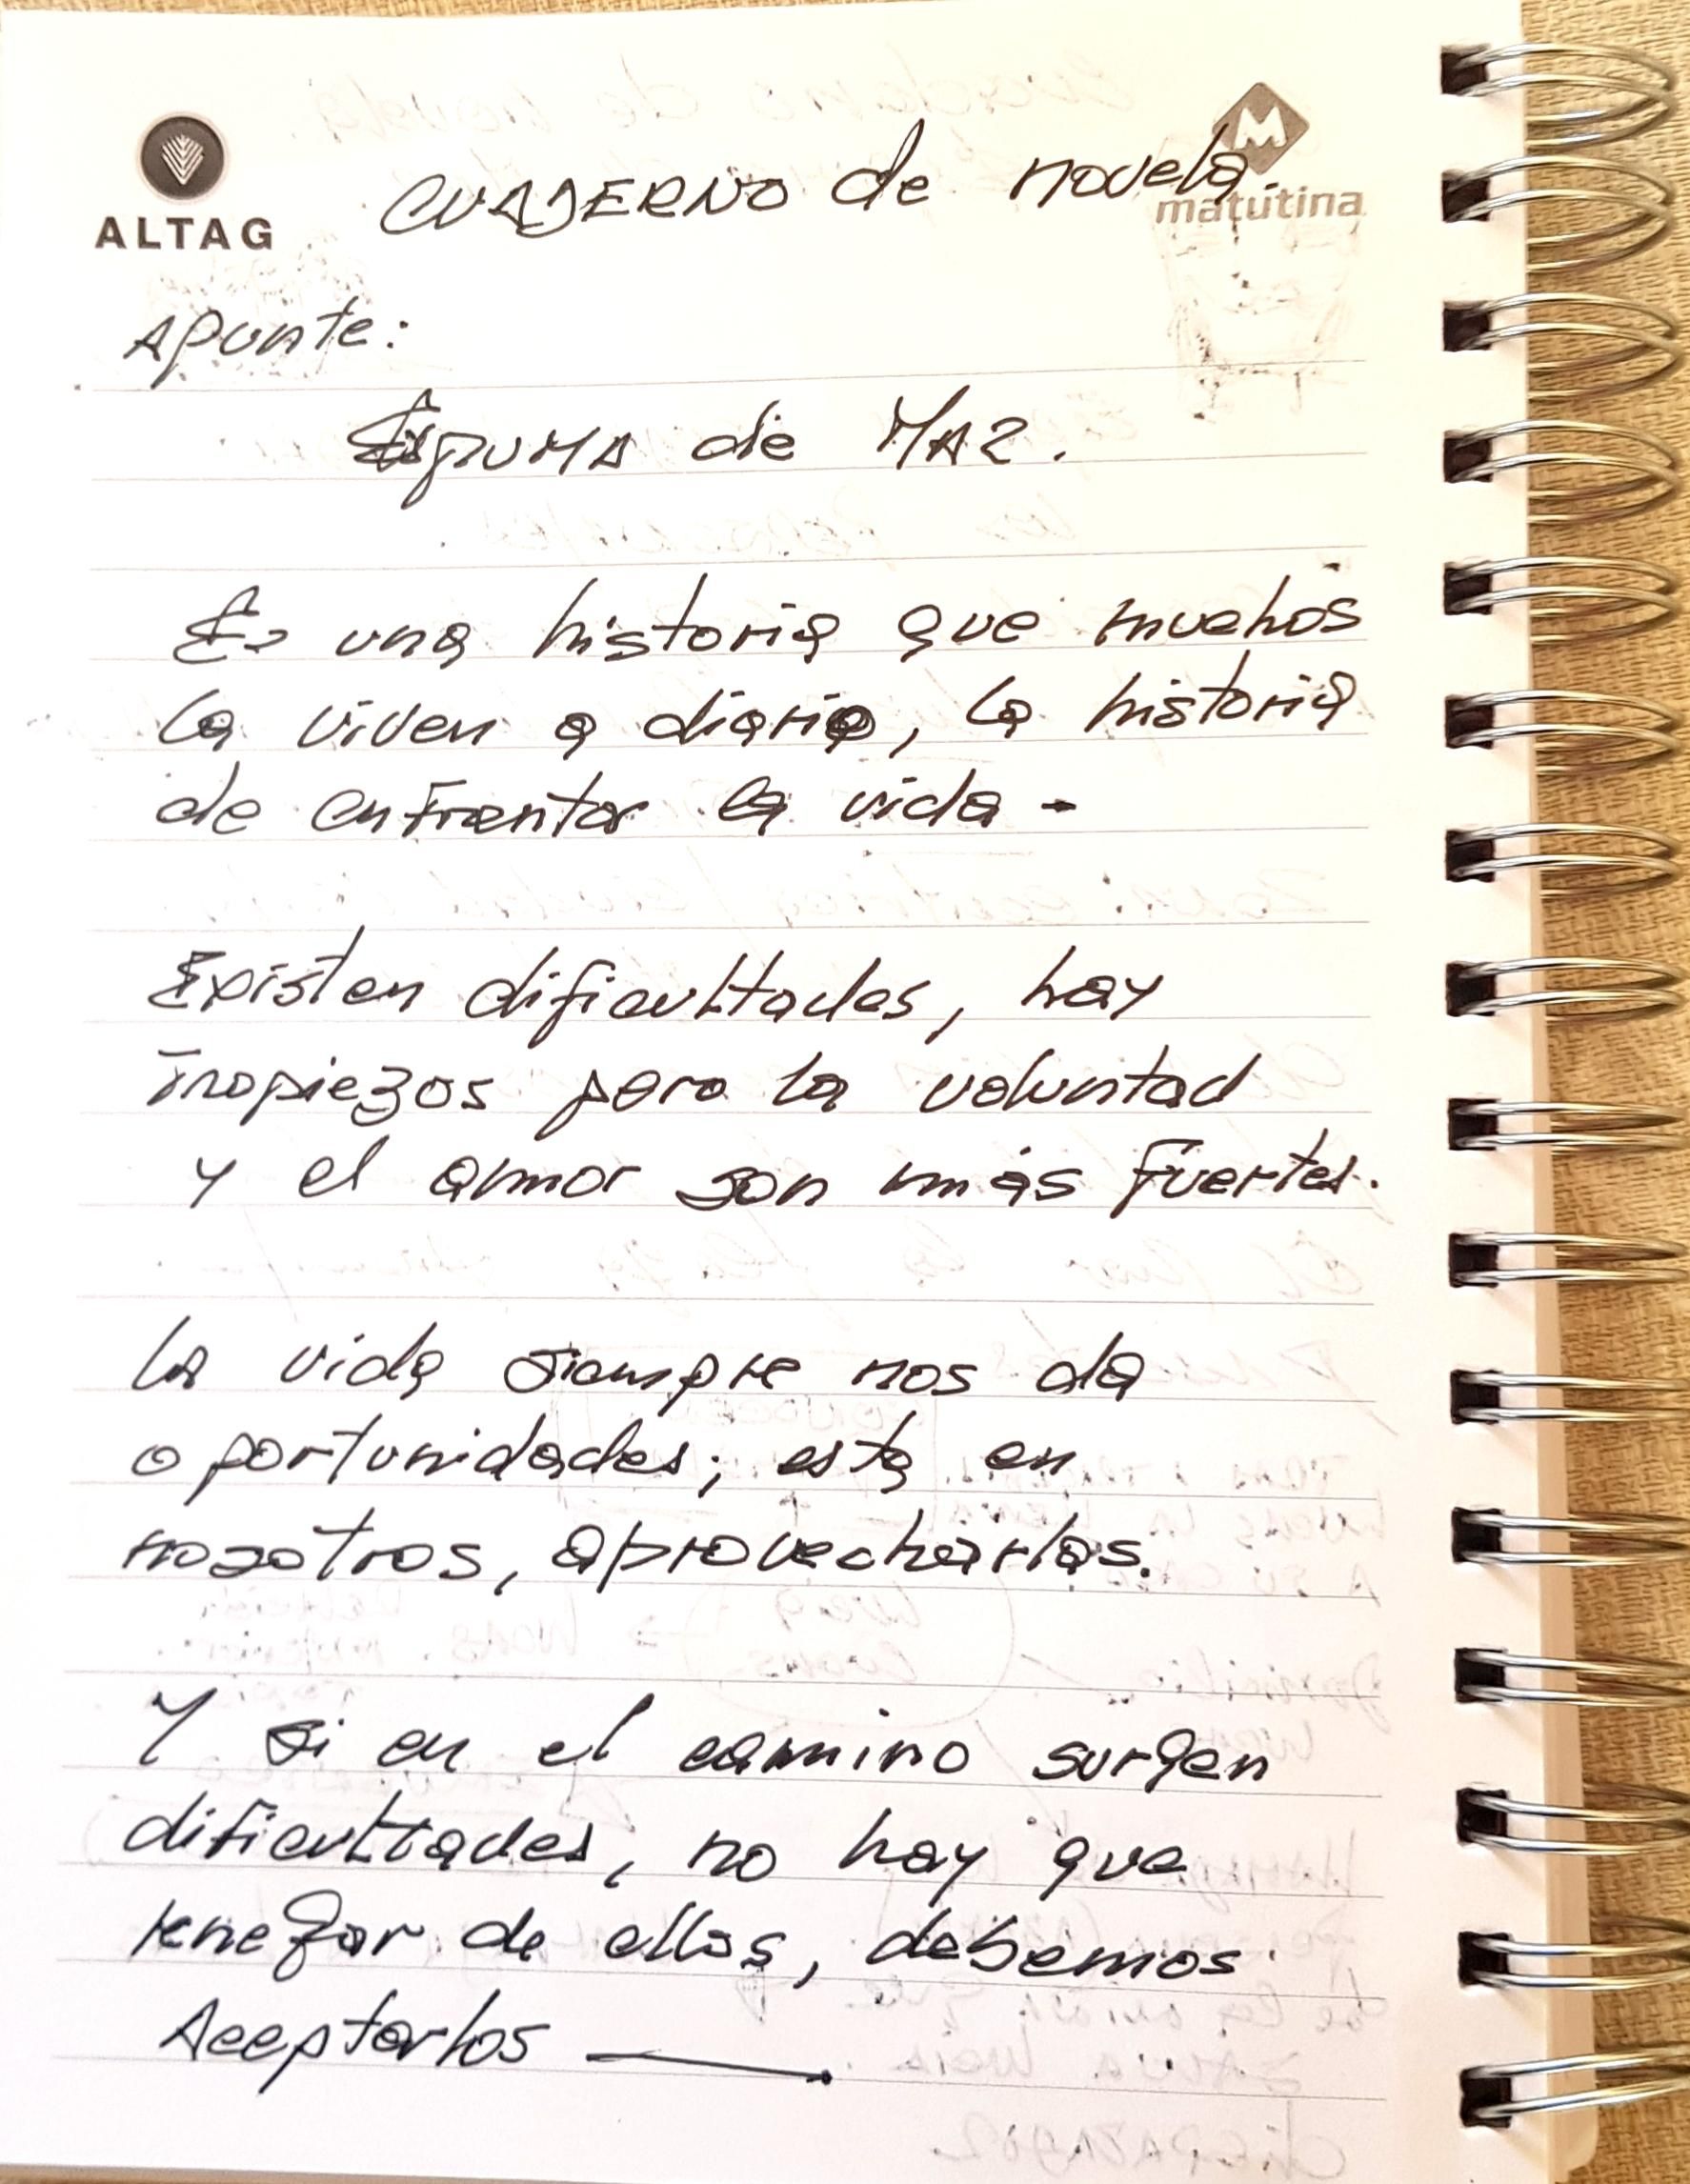 ALTAG
matutina
CUADERNO de novela.
Apunte:
Espuma de MAR.
Es una historia que muchos
la viven a diario, la historia
de enfrentar la vida -
Existen dificultades, hay
Tropiezos pero la voluntad
y el amor son más fuertes.
La vida siempre nos da
oportunidades; esta en
nosotros, aprovecharlas.
Y si en el camino surgen
dificultades, no hay que
renegar de ellas, debemos
Aceptarlos